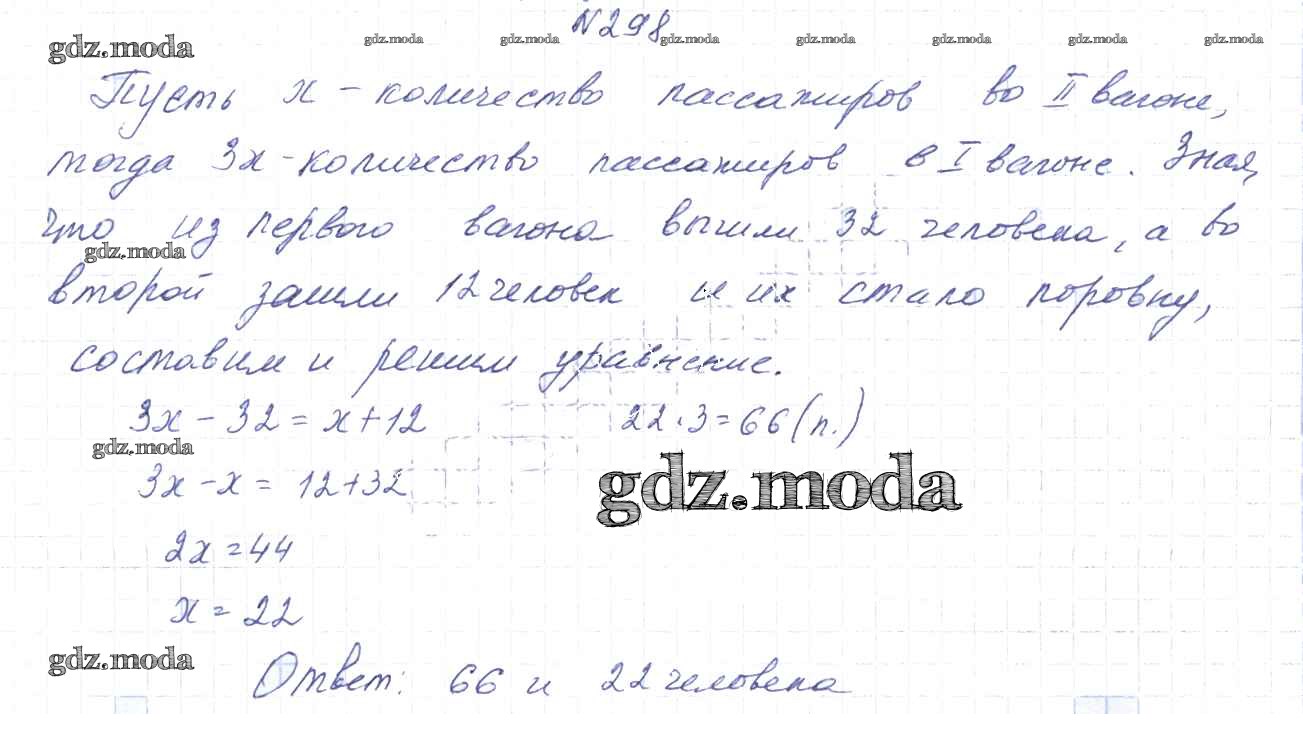 N298
gdz.moda gdz.moda gdz.moda gdz.moda gdz.moda gdz.moda gdz.moda gdz.moda
Пусть x - количество пассажиров во II вагоне,
тогда 3x - количество пассажиров в I вагоне. Зная,
что из первого вагона вышли 32 человека, а во
gdz.moda
второй зашли 12 человек и их стало поровну,
составим и решим уравнение.
3x - 32 = x + 12 22 · 3 = 66 (п.)
gdz.moda
3x - x = 12 + 32 gdz.moda
2x = 44
x = 22
gdz.moda
Ответ: 66 и 22 человека